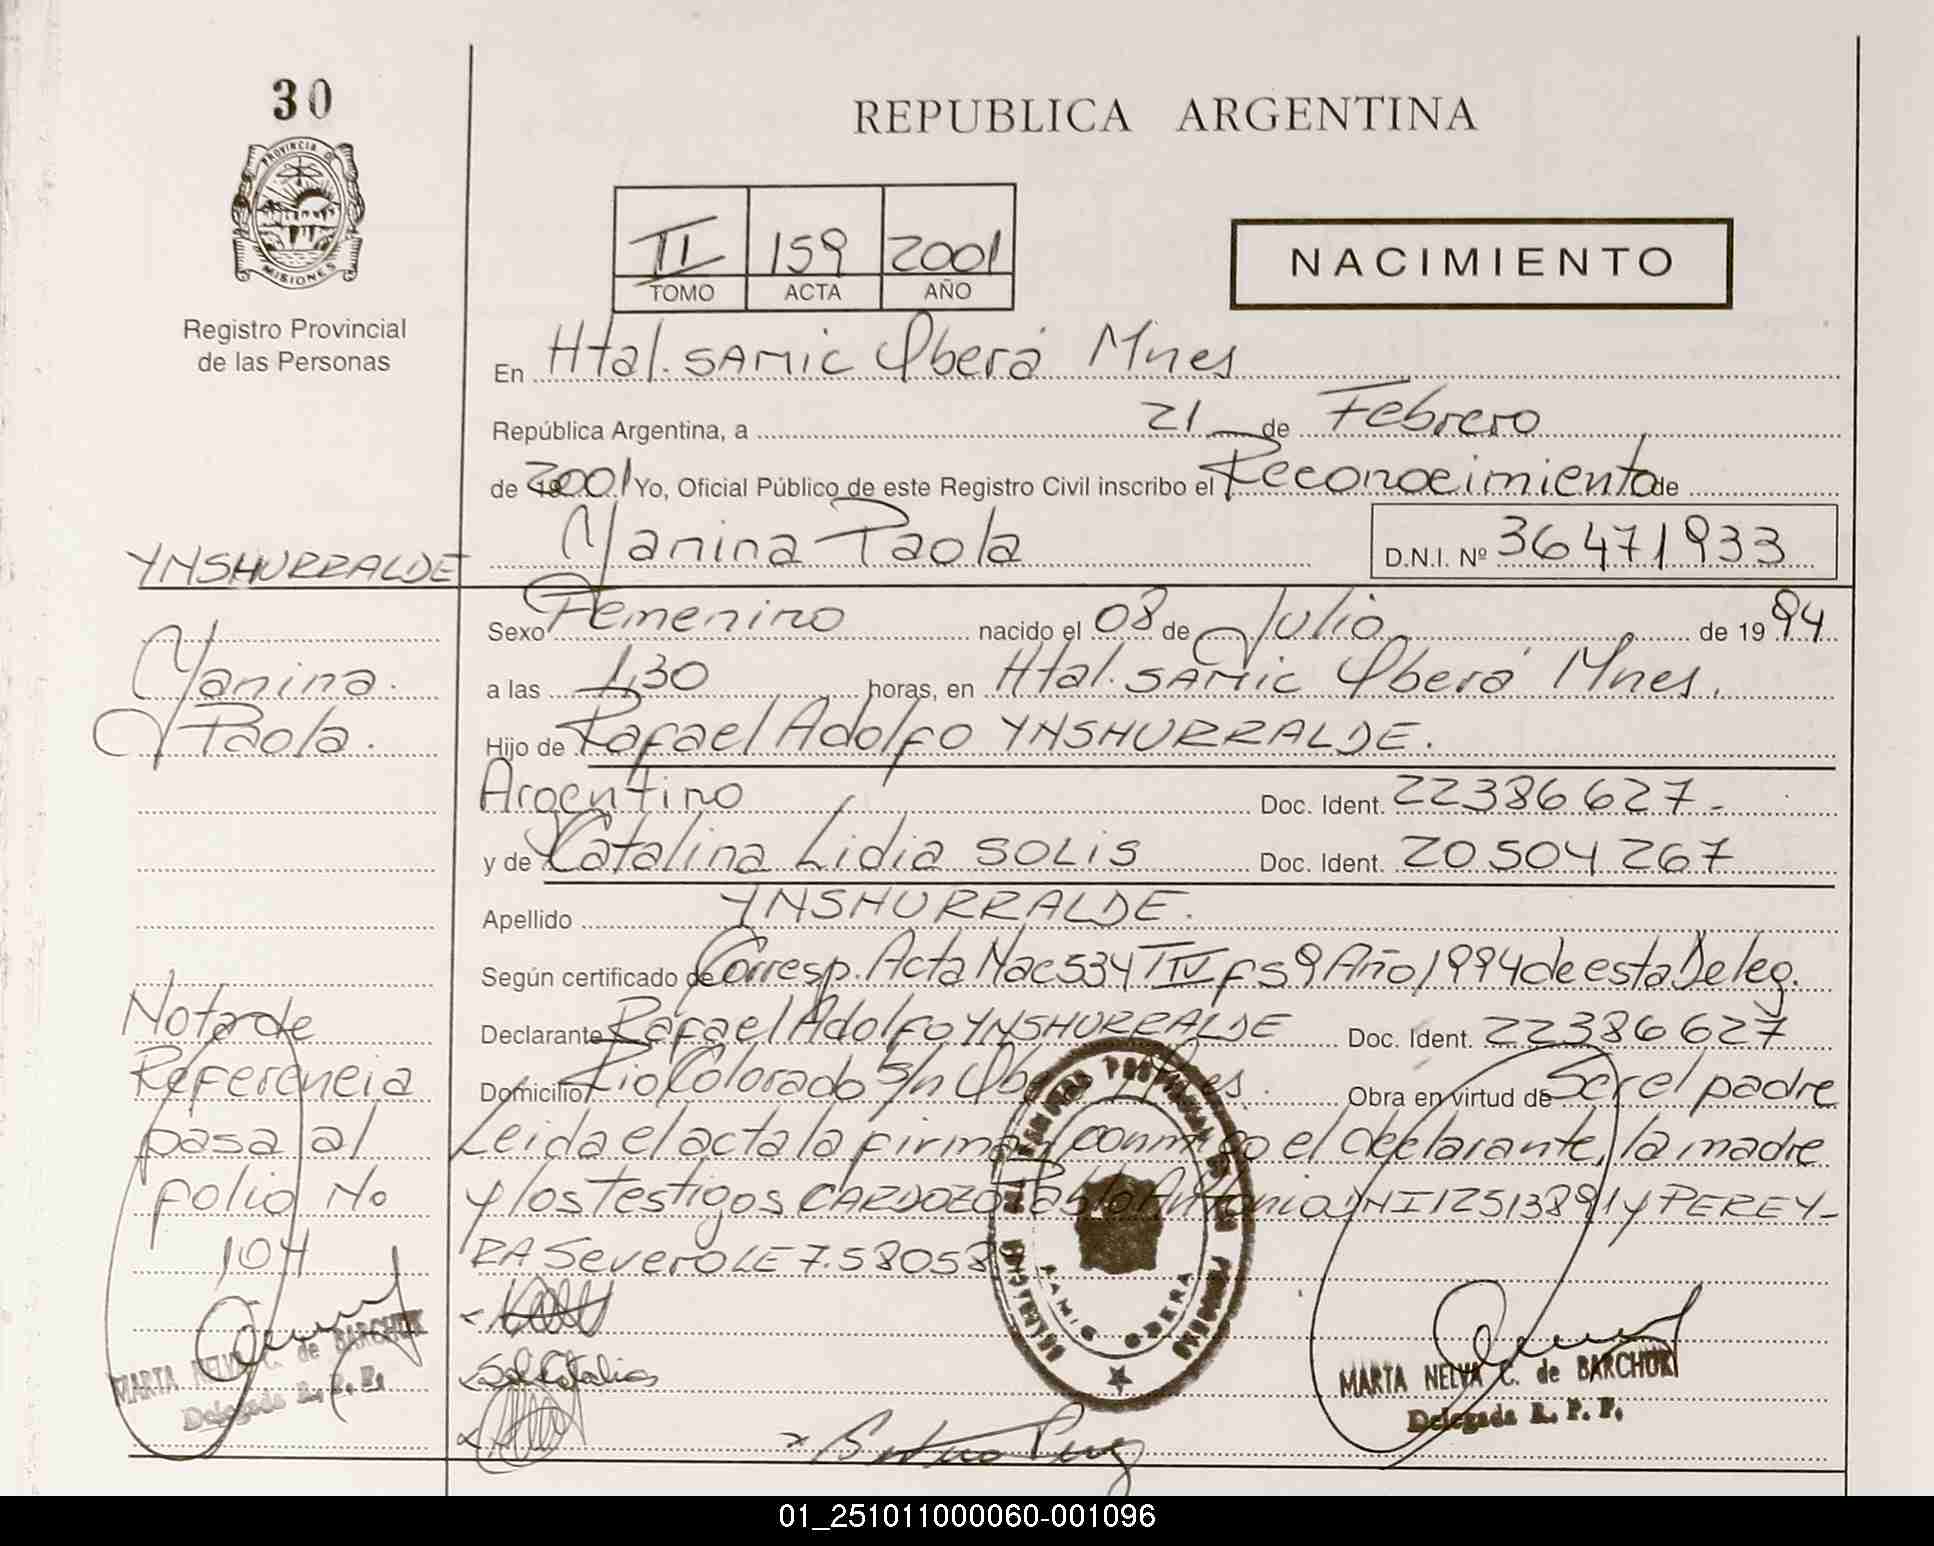 30
PROVINCIA DE
MISIONES
Registro Provincial
de las Personas
REPUBLICA ARGENTINA
II 159 2001
TOMO ACTA AÑO
NACIMIENTO
En Htal. SAMIC Oberá Mnes
República Argentina, a 21 de Febrero
de 2001 Yo, Oficial Público de este Registro Civil inscribo el Reconocimiento de
YNSHURRALDE
Manina Paola
D.N.I. Nº 36471933
Sexo Femenino nacido el 08 de Julio de 1994
Manina.
Paola.
a las 1,30 horas, en Htal. SAMIC Oberá Mnes.
Hijo de Rafael Adolfo YNSHURRALDE.
Argentino Doc. Ident. 22386627-
y de Catalina Lidia SOLIS Doc. Ident. 20504267
Apellido YNSHURRALDE.
Según certificado de Corresp. Acta Nac 534 TIV fs 9 Año 1994 de esta Deleg.
Declarante Rafael Adolfo YNSHURRALDE Doc. Ident. 22386627
Domicilio Rio Colorado s/n Obera Mnes. Obra en virtud de Ser el padre
Leida el acta la firman conmigo el declarante, la madre
y los testigos CARDOZO Pablo Antonio DNI 12513891 y PEREY-
RA Severo LE 7.58058
Nota de
Referencia
pasa al
folio No
104
MARTA NELVA C. de BARCHUK
Delegada R. P. P.
OBERA
MARTA NELVA C. de BARCHUK
Delegada R. P. P.
01_251011000060-001096